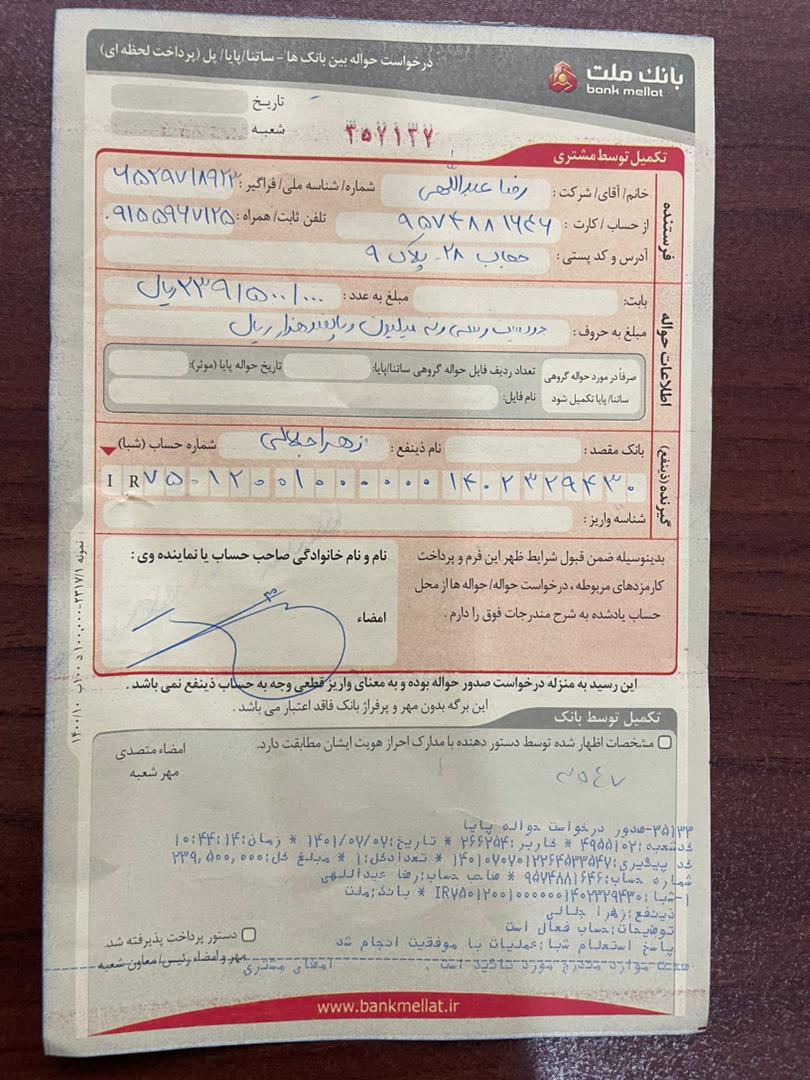 بانک ملت
bank mellat
درخواست حواله بین بانک ها - ساتنا/پایا/ پل (پرداخت لحظه ای)
تاریخ
شعبه
۳۵۷۱۳۷
تکمیل توسط مشتری
فرستنده
خانم/ آقای/ شرکت : رضا عبداللهی شماره/ شناسه ملی/ فراگیر : ۶۵۲۹۷۱۸۹۲۳
از حساب / کارت : ۹۵۷۴۸۸۱۶۴۶ تلفن ثابت/ همراه : ۰۹۱۵۵۹۶۷۱۲۵
آدرس و کد پستی : حجاب ۲۸- پلاک ۹
اطلاعات حواله
بابت: مبلغ به عدد : ۲۳۹/۵۰۰/۰۰۰ ریال
مبلغ به حروف : دویست و سی و نه میلیون و پانصد هزار ریال
صرفاً در مورد حواله گروهی ساتنا/ پایا تکمیل شود
تعداد ردیف فایل حواله گروهی ساتنا/پایا: تاریخ حواله پایا (موثر):
نام فایل:
گیرنده (ذینفع)
بانک مقصد : نام ذینفع : زهرا جلالی شماره حساب (شبا)
IR ۷۵۰۱۲۰۰۱۰۰۰۰۰۰۱۴۰۲۳۲۹۴۳۰
شناسه واریز :
بدینوسیله ضمن قبول شرایط ظهر این فرم و پرداخت
کارمزدهای مربوطه ، درخواست حواله/ حواله ها از محل
حساب یادشده به شرح مندرجات فوق را دارم .
نام و نام خانوادگی صاحب حساب یا نماینده وی :
امضاء
این رسید به منزله درخواست صدور حواله بوده و به معنای واریز قطعی وجه به حساب ذینفع نمی باشد .
این برگه بدون مهر و پرفراژ بانک فاقد اعتبار می باشد .
تکمیل توسط بانک
مشخصات اظهار شده توسط دستور دهنده با مدارک احراز هویت ایشان مطابقت دارد.
امضاء متصدی
مهر شعبه
۳۵۱۳۳-صدور درخواست حواله پایا
کدشعبه:۴۹۵۵۱۰۲ * کاربر:۲۶۶۲۵۴ * تاریخ:۱۴۰۱/۰۷/۰۷ * زمان:۱۰:۴۴:۱۴
کد پیگیری:۱۴۰۱۰۷۰۷۰۱۲۲۶۴۵۳۳۵۴۷ * تعدادکل:۱ * مبلغ کل:۲۳۹,۵۰۰,۰۰۰
شماره حساب:۹۵۷۴۸۸۱۶۴۶ * صاحب حساب:رضا عبداللهی
۱-شبا:IR۷۵۰۱۲۰۰۱۰۰۰۰۰۰۱۴۰۲۳۲۹۴۳۰ * بانک:ملت
ذینفع:زهرا جلالی
توضیحات:حساب فعال است
پاسخ استعلام شبا:عملیات با موفقیت انجام شد
صحت موارد مندرج مورد تائید است . امضای مشتری
دستور پرداخت پذیرفته شد.
مهر و امضاء رئیس/ معاون شعبه
www.bankmellat.ir